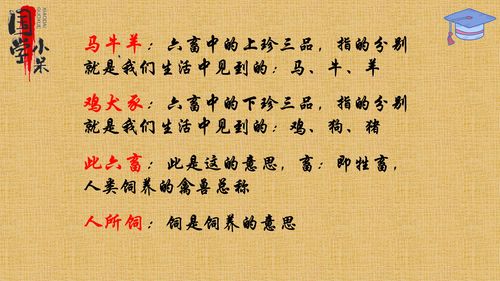 国学
小米
XIAOMI
GUOXUE
马牛羊：六畜中的上珍三品，指的分别
就是我们生活中见到的：马、牛、羊
鸡犬豕：六畜中的下珍三品，指的分别
就是我们生活中见到的：鸡、狗、猪
此六畜：此是这的意思，畜：即牲畜，
人类饲养的禽兽总称
人所饲：饲是饲养的意思